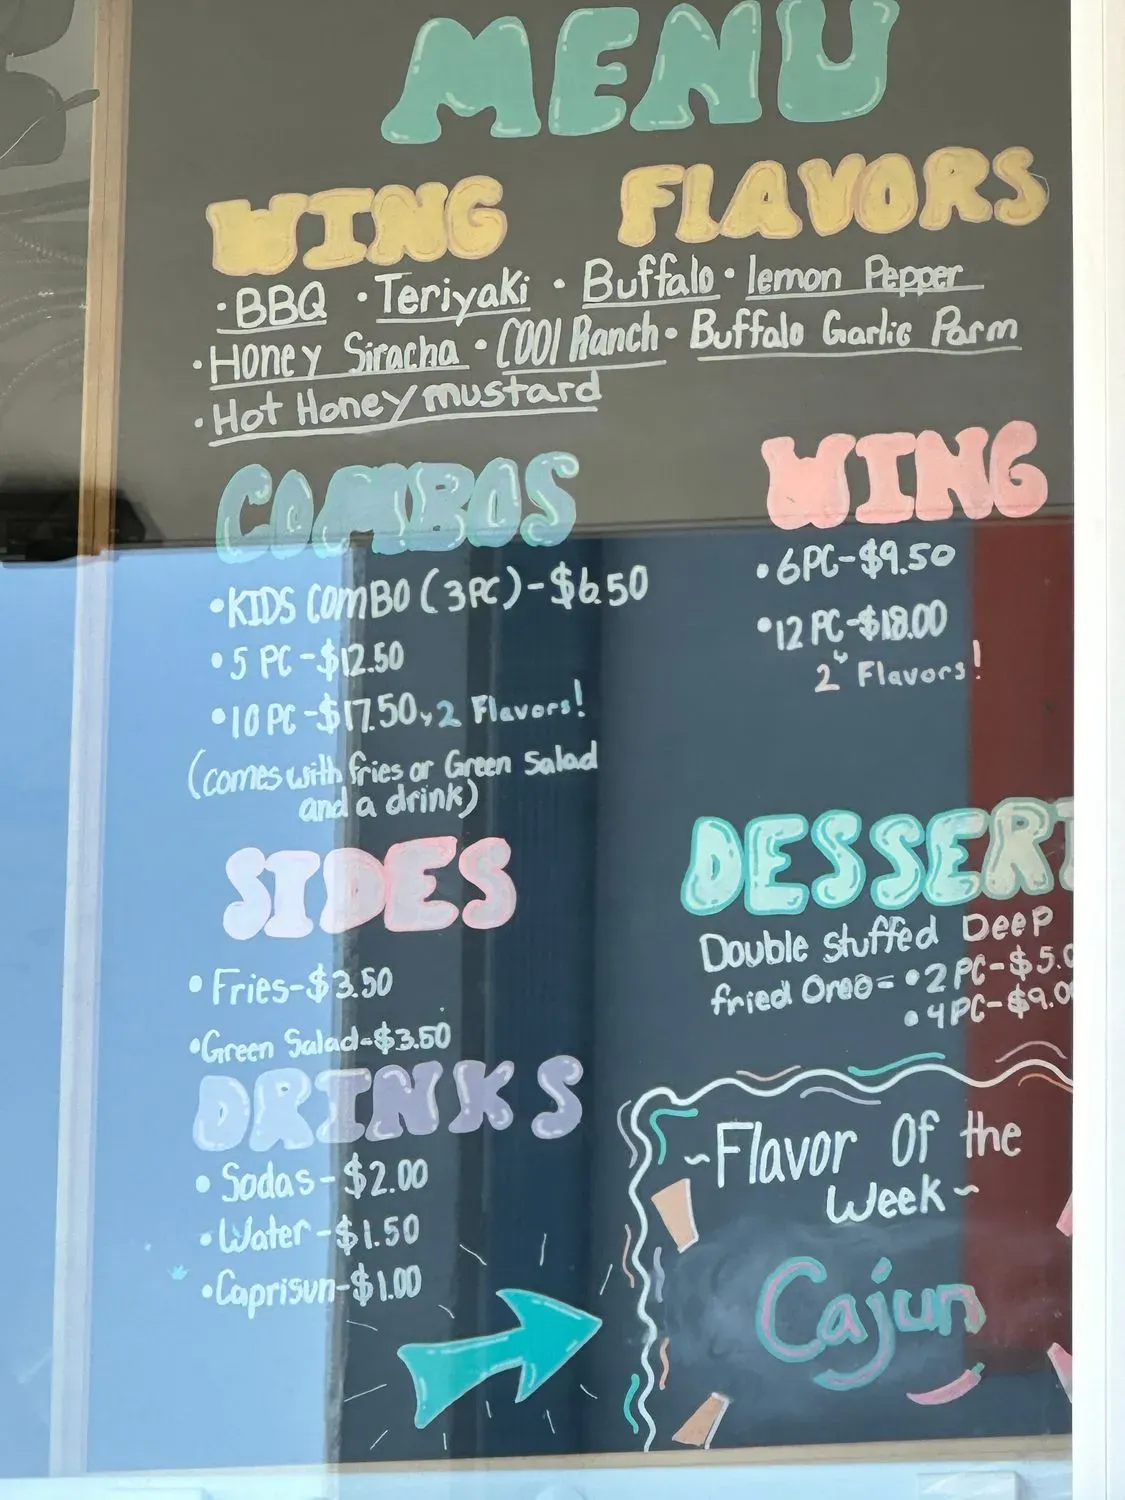 MENU
WING FLAVORS
• BBQ • Teriyaki • Buffalo • lemon Pepper
• Honey Siracha • COOl Ranch • Buffalo Garlic Parm
• Hot Honey mustard
COMBOS
• KIDS COMBO (3PC) - $6.50
• 5 PC - $12.50
• 10 PC - $17.50, 2 Flavors!
(comes with fries or Green Salad
and a drink)
WING
• 6PC - $9.50
• 12 PC - $18.00
2 Flavors!
SIDES
• Fries - $3.50
• Green Salad - $3.50
DESSERT
Double stuffed Deep
fried Oreo = • 2 PC - $5.0
• 4PC - $9.00
DRINKS
• Sodas - $2.00
• Water - $1.50
• Caprisun - $1.00
~Flavor Of the
Week~
Cajun